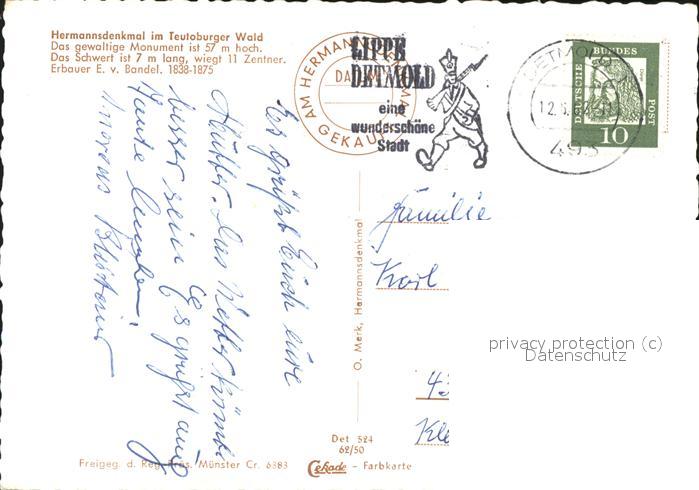 Hermannsdenkmal im Teutoburger Wald
Das gewaltige Monument ist 57 m hoch.
Das Schwert ist 7 m lang, wiegt 11 Zentner.
Erbauer E. v. Bandel. 1838-1875
AM HERMANN
GEKAUFT
LIPPE
DETMOLD
eine
wunderschöne
Stadt
DETMOLD
12.5.
493
DEUTSCHE BUNDES POST
10
Es grüßt Euch eure
Mutter. Das Wetter könnte
besser sein Es grüßt auch
Tante
Familie
Karl
43
Kle
O. Merk, Hermannsdenkmal
privacy protection (c)
Datenschutz
Det 524
62/50
Freigeg. d. Reg. Präs. Münster Cr. 6383
Cekade - Farbkarte